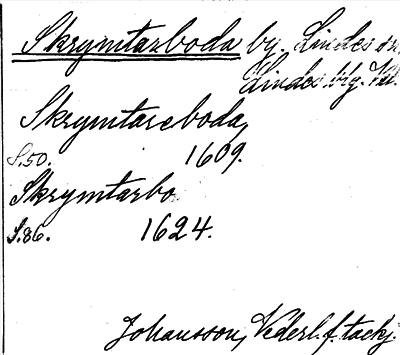 Skrymtarboda by. Lindes sn.
Lindes brg. Vstl.
Skrymtareboda,
S.50. 1609.
Skrymtarbo
S.86. 1624.
Johansson, Vederl. f. tackj.